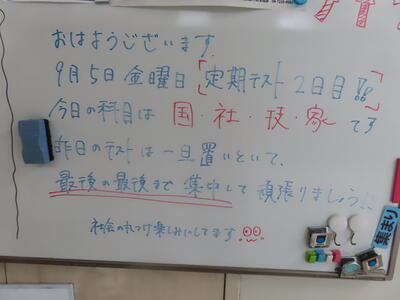 おはようございます。
9月5日 金曜日 「定期テスト2日目!!」
今日の科目は 国・社・技・家 です
昨日のテストは一旦置いといて、
最後の最後まで 集中して 頑張りましょう!!
社会の丸つけ楽しみにしてます
集まり